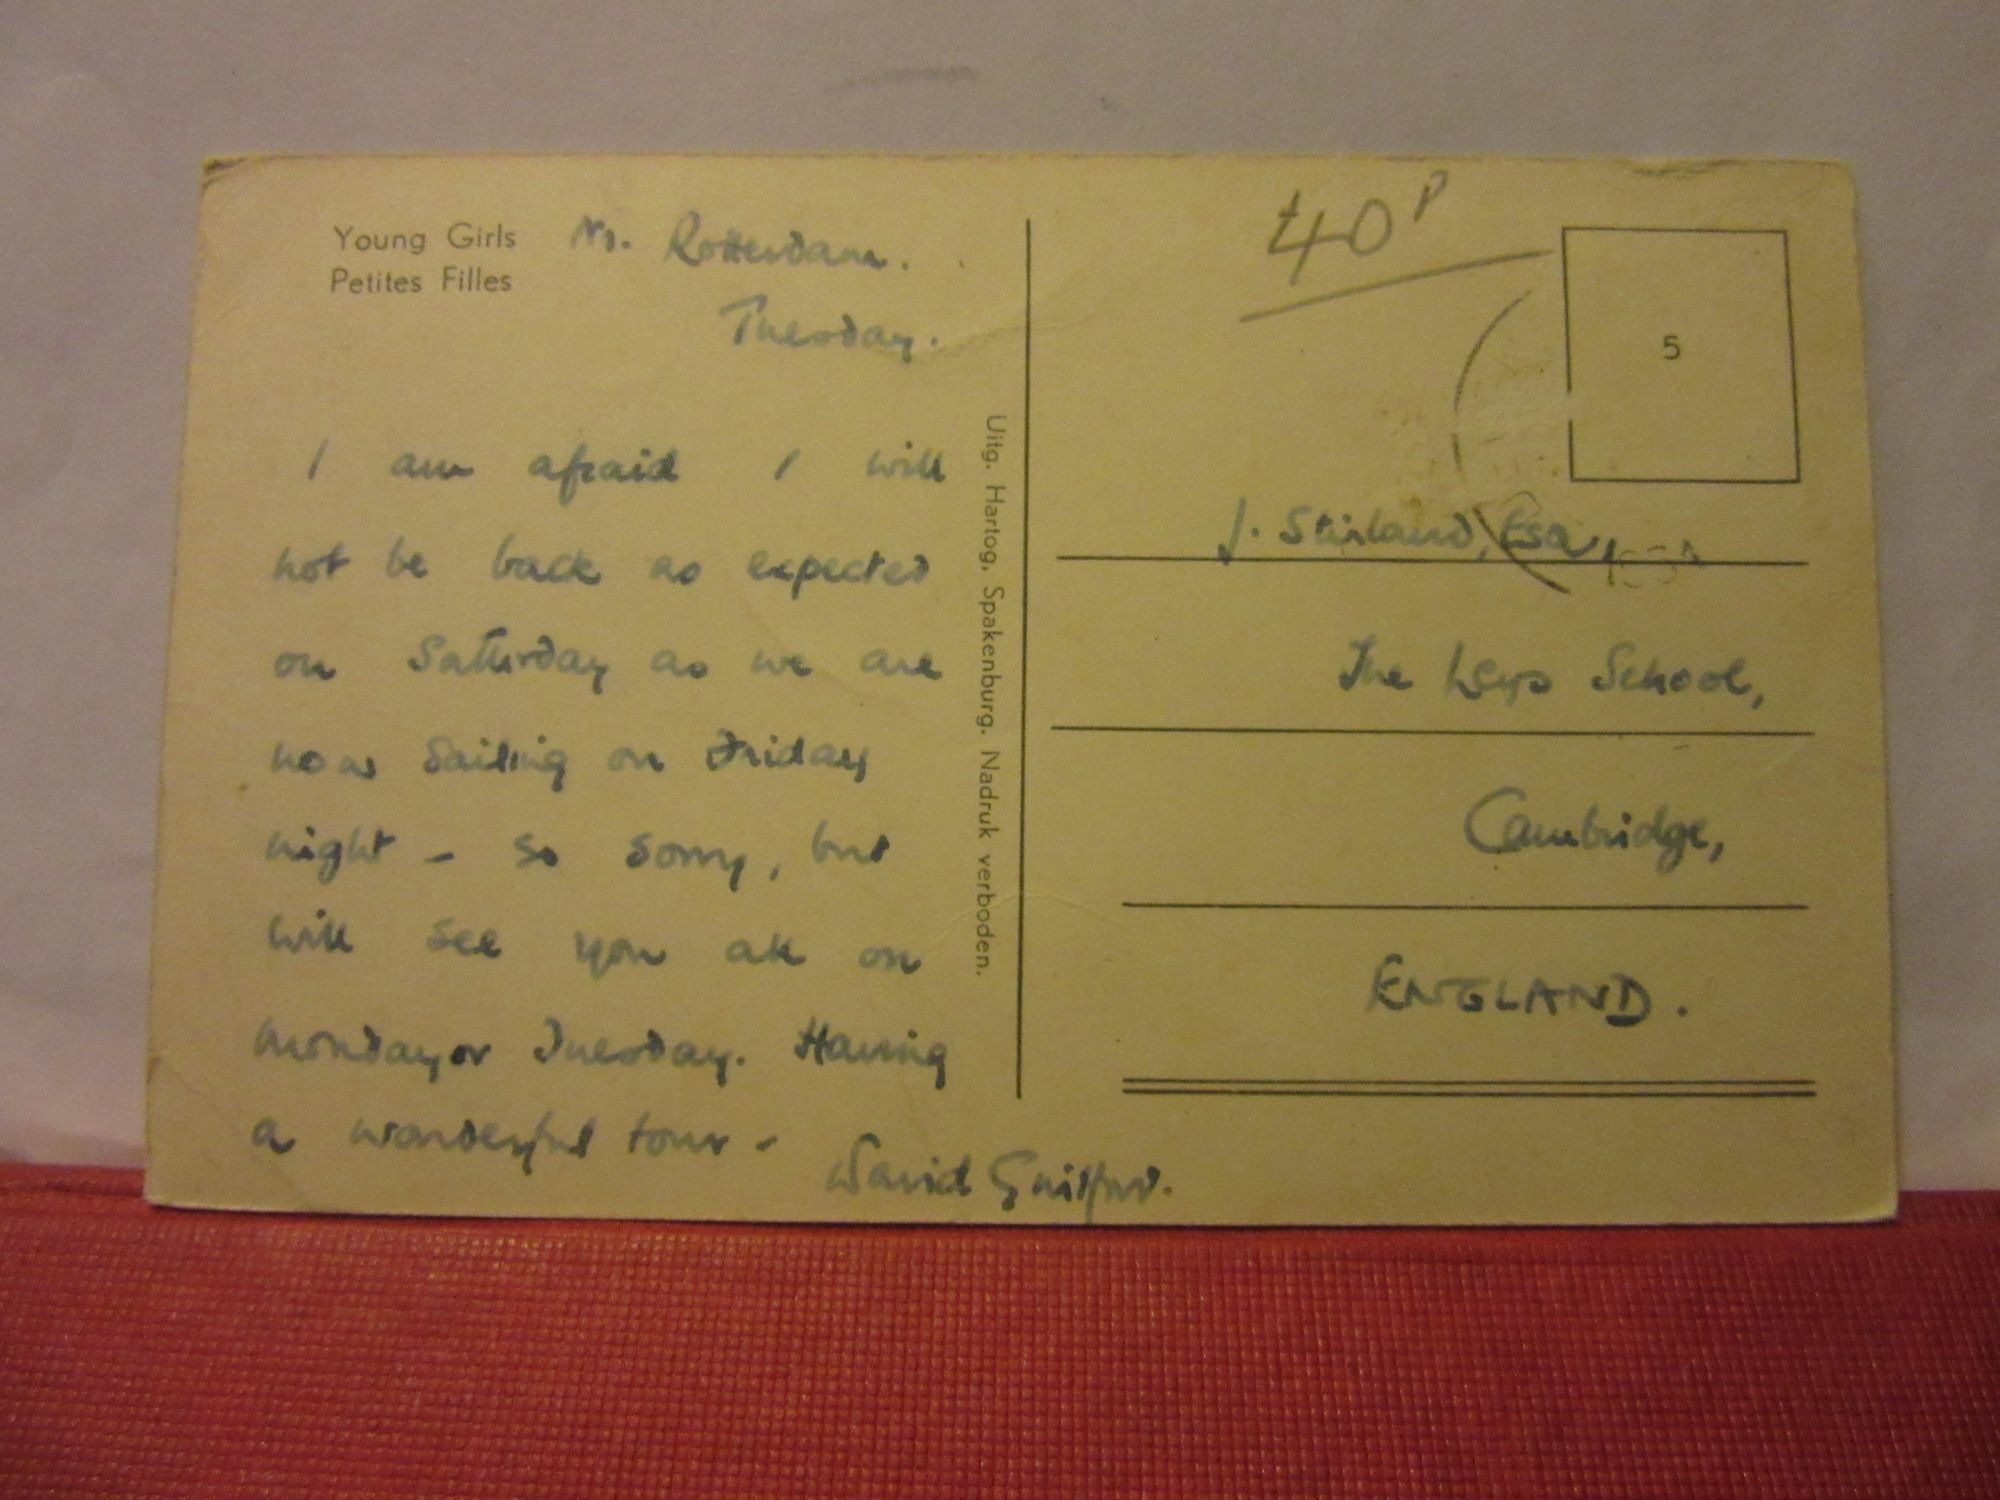 Young Girls
Petites Filles
Nr. Rotterdam.
Tuesday.
I am afraid I will
not be back as expected
on Saturday as we are
now sailing on Friday
night - so sorry, but
will see you all on
Monday or Tuesday. Having
a wonderful tour -
David Guilford.
Uitg. Hartog, Spakenburg. Nadruk verboden.
40P
5
J. Stirland, Esq.,
The Leys School,
Cambridge,
ENGLAND.